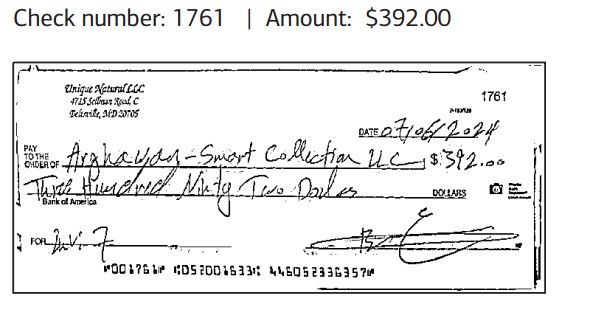 Check number: 1761 | Amount: $392.00
Unique Natural LLC
4715 Sellman Road, C
Beltsville, MD 20705
1761
DATE 07/06/2024
PAY TO THE ORDER OF Arghawan-Smart Collection LLC $392.00
Three Hundred Ninty Two Dollars DOLLARS
Bank of America
FOR Inv. 7
⑈001761⑈ ⑆052001633⑆ 446052336357⑈